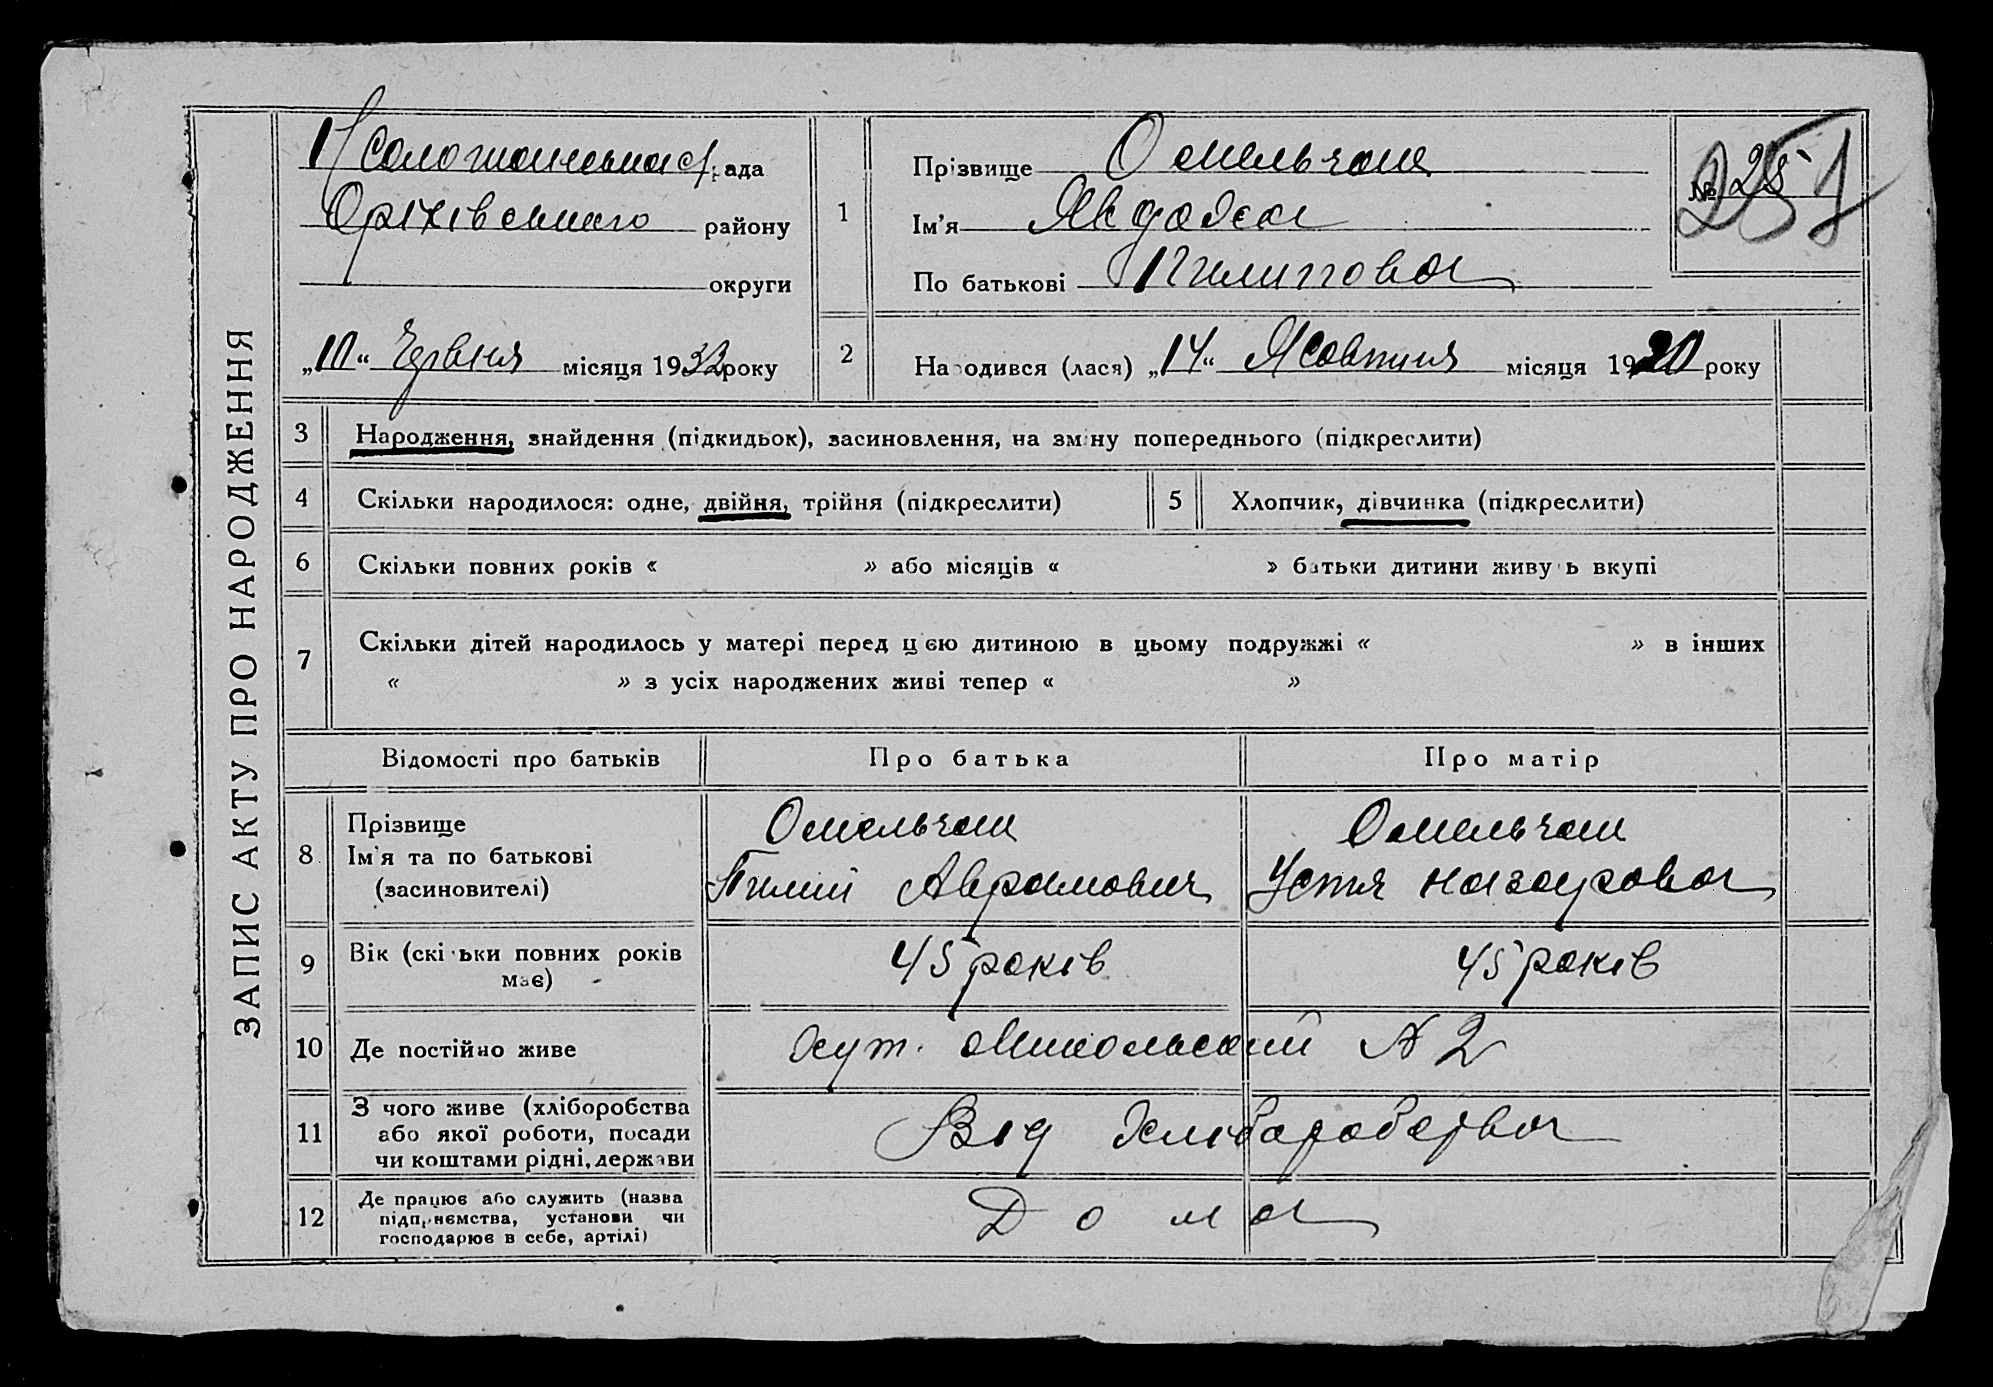 ЗАПИС АКТУ ПРО НАРОДЖЕННЯ
рада
Оріхівського району
округи
„10“ Червня місяця 1933 року
1
Прізвище Омельчак
Ім'я Явдоха
По батькові Пилипова
№ 25
251
2
Народився (лася) „14“ Жовтня місяця 1920 року
3 Народження, знайдення (підкидьок), засиновлення, на зміну попереднього (підкреслити)
4 Скільки народилося: одне, двійня, трійня (підкреслити)
5 Хлопчик, дівчинка (підкреслити)
6 Скільки повних років « » або місяців « » батьки дитини живуть вкупі
7 Скільки дітей народилось у матері перед цією дитиною в цьому подружжі « » в інших
« » з усіх народжених живі тепер « »
Відомості про батьків Про батька Про матір
8 Прізвище
Ім'я та по батькові
(засиновителі)
Омельчак
Пилип Аврамович
Омельчак
Устя Назарова
9 Вік (скільки повних років
має)
45 років
45 років
10 Де постійно живе
хут. Микольський № 2
11 З чого живе (хліборобства
або якої роботи, посади
чи коштами рідні, держави
Від хліборобства
12 Де працює або служить (назва
підприємства, установи чи
господарює в себе, артілі)
Дома